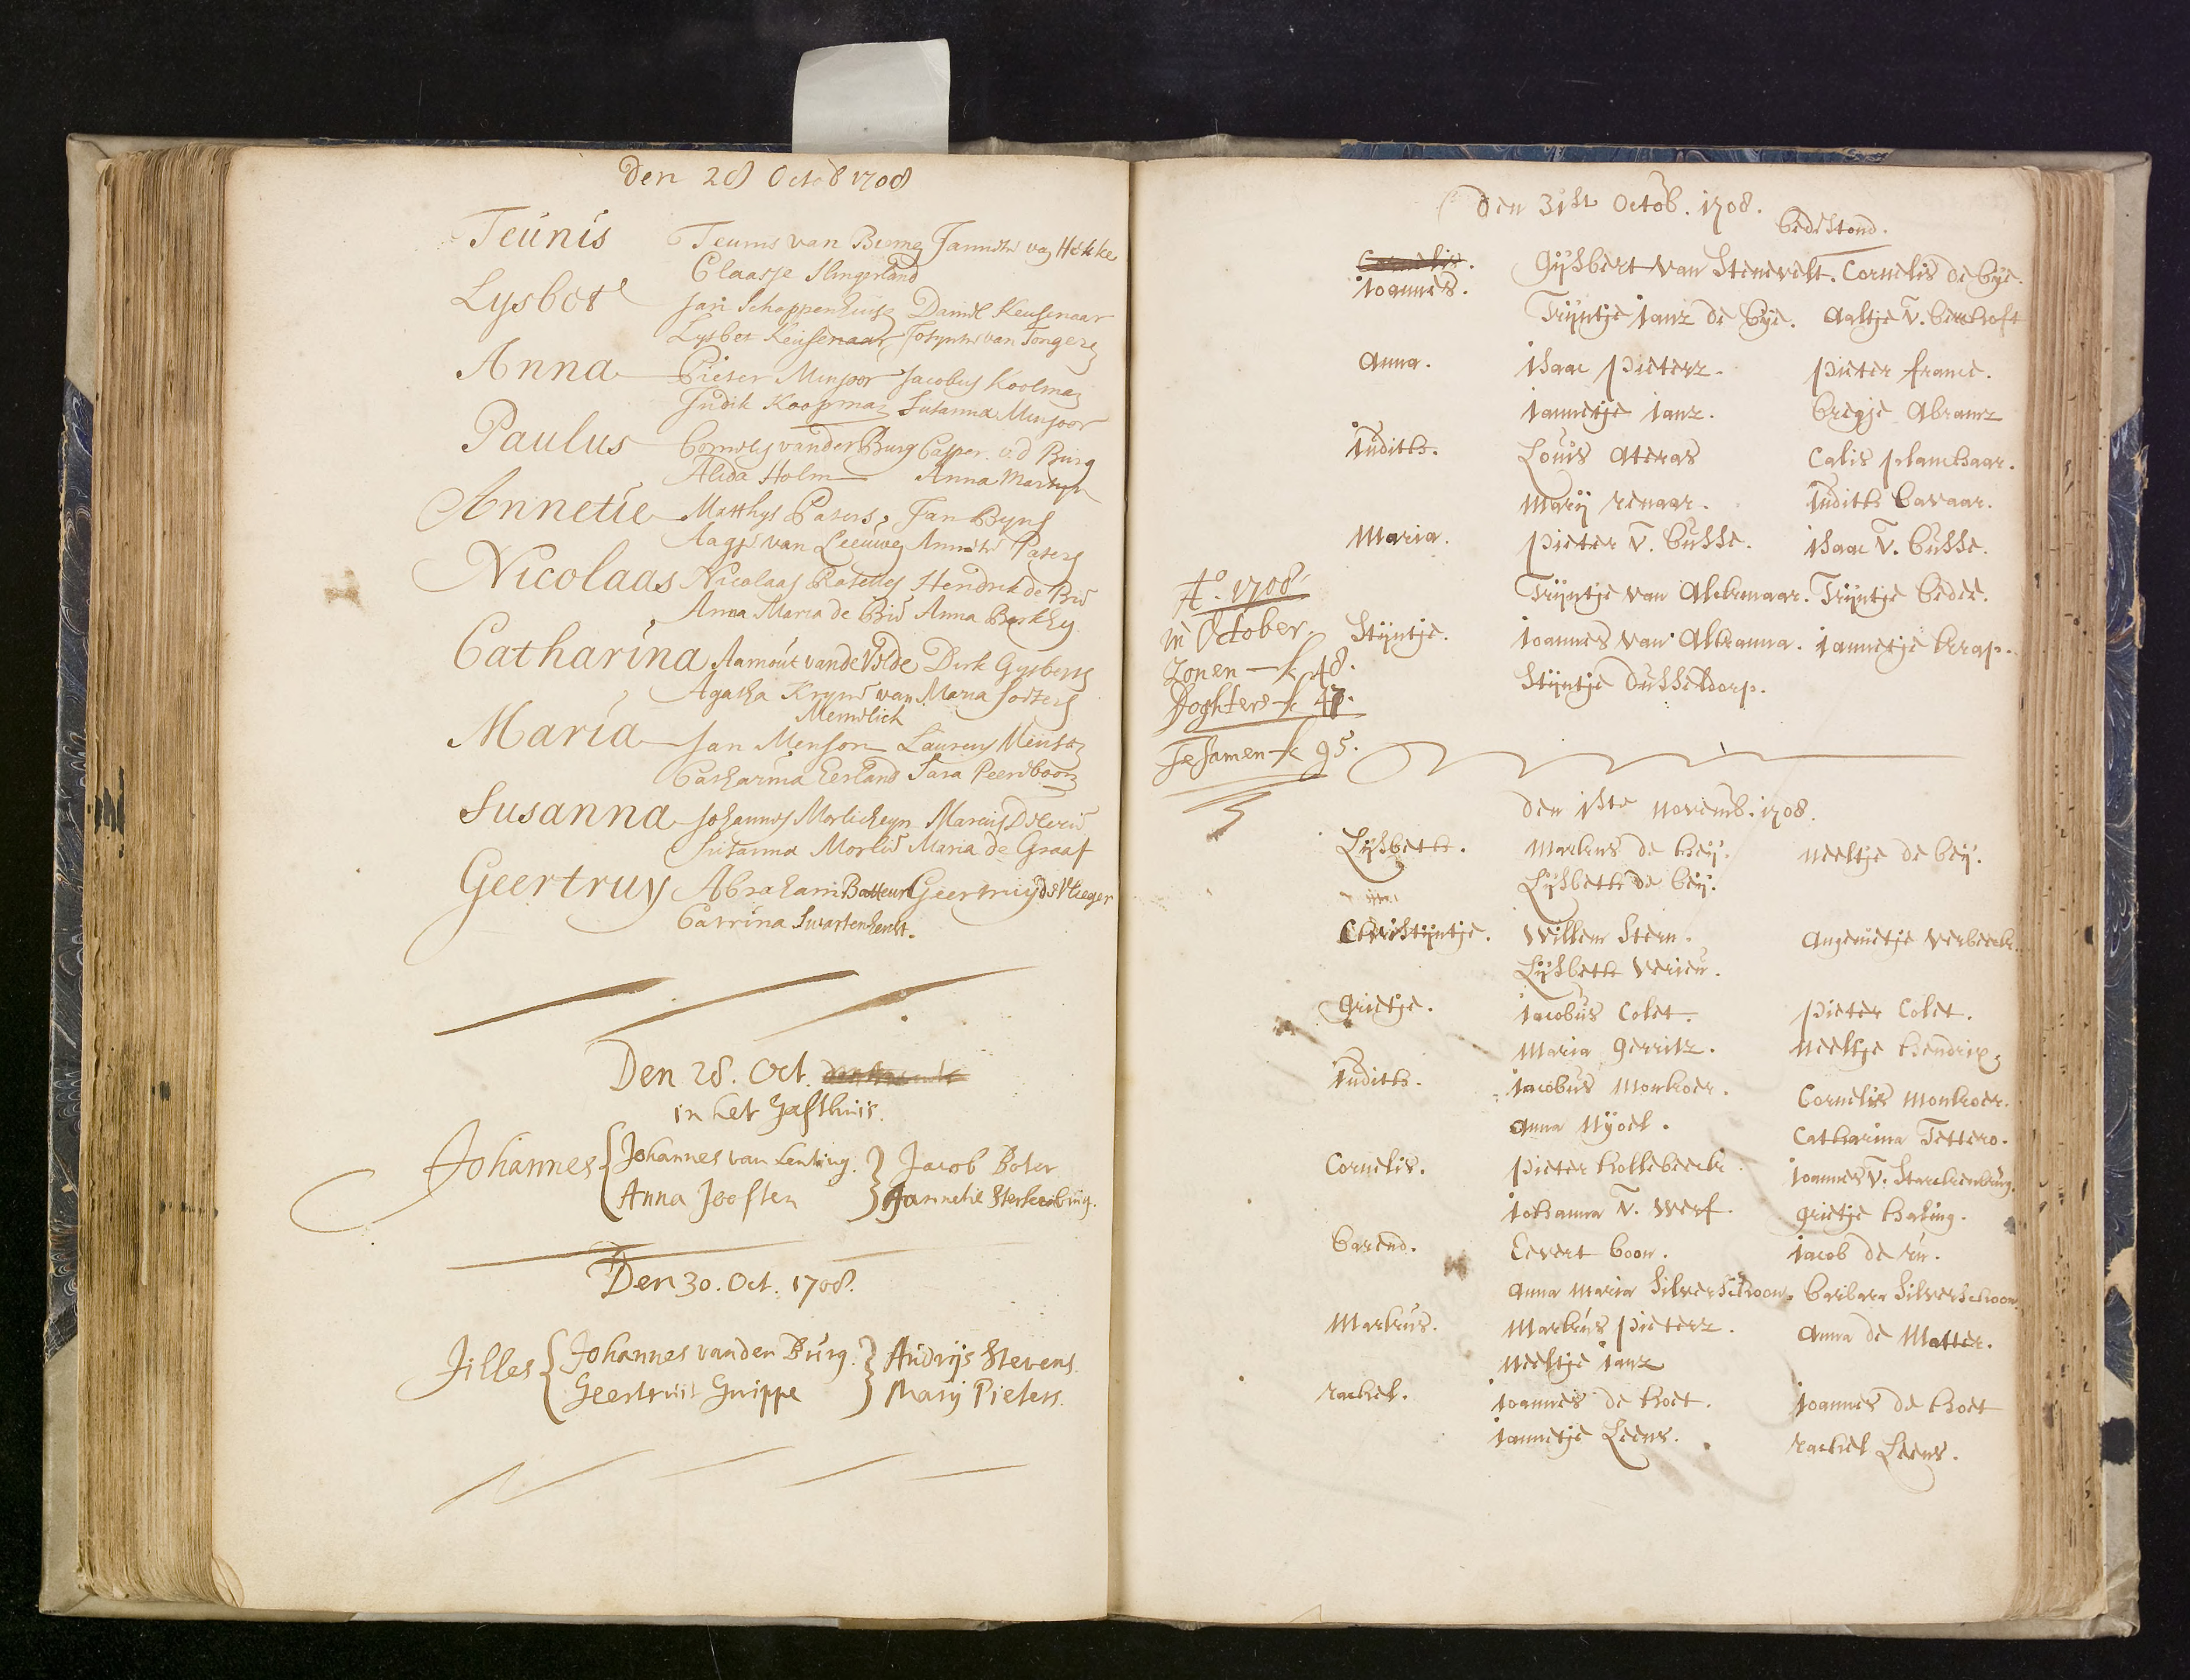 Den 28 Octob 1708
Teunis Teunis van Bieme Jannetie va Hekke
Claasje Slingerland
Lysbet Jan Schoppenhuise Daniel Keusenaar
Lysbet Keusenaar Josyntie van Tongere
Anna Pieter Minjoor Jacobus Koolman
Judik Koopman Susanna Minjoor
Paulus Cornelis vander Burg Casper v.d Burg
Alida Holm Anna Martyn
Annetie Matthys Paters, Jan Byns
Aagje van Leeuwe Annetie Paters
Nicolaas Nicolaas Hendrik de Brie
Anna Maria de Brie Anna
Catharina Aarnout vande Velde Dirk Gysberts
Agatha Kryne van Maria Sosters
Memelick
Maria Jan Menson Laurens Menson
Catharina Eerland Sara Peereboom
Susanna Johannes Morlicheyn Marcus
Susanna Morlie Maria de Graaf
Geertruy Abraham Batteur Geertruyd d Vlieger
Catrina Swartenhenst.
Den 28. Oct.
in het Gasthuis.
Johannes { Johannes van Lenting. } Jacob Boter
Anna Joosten Jannetie Sterkenburg.
Den 30. Oct. 1708.
Jilles { Johannes vanden Burg. } Andrijs Stevens.
Geertruit Guippe Marij Pieters.
den 31ste Octob. 1708.
bedestond.
Cornelis. Gijsbert van Stenevelt. Cornelis de Bije.
Joannes.
Trijntje Janz de Bije. Aaltje v. Benthoft
Anna. Isaac Pieterz. Pieter France.
Jannetje Janz. Bregje Abramz
Judith. Louis Ateras Calis Planchaar.
Marij Renaar. Judith Bavaar.
Maria. Pieter v. Busse. Isaac v. Busse.
Trijntje van Alckmaar. Trijntje Bedee.
Ao. 1708
in October.
Zonen — 48.
Doghters — 47.
Tesamen — 95.
Stijntje. Joannes van Altranna. Jannetje Krap.
Stijntje Dusseldorp.
den 1ste Novemb. 1708.
Lijsbeth. Markus de Keij. Neeltje de Beij.
Lijsbeth de Beij.
Christijntje. Willem Stern. Angenietje Verbeeck.
Lijsbeth Verieu.
Grietje. Jacobus Colet. Pieter Colet.
Maria Gerritz. Neeltje Hendrix
Judith. Jacobus Monkoer. Cornelis Monkoer.
Anna Nijoel. Catharina Tettero.
Cornelis. Pieter Hollebeeck. Joannes v. Starckenburg.
Johanna v. Werf. Grietje Haking.
Barend. Evert Boon. Jacob de Ru.
Anna Maria Silverschoon. Barbara Silverschoon.
Markus. Markus Pieterz. Anna de Matter.
Neeltje Janz
Rachel. Joannes de Hoet. Joannes de Hoet
Jannetje Leens. Rachel Leens.